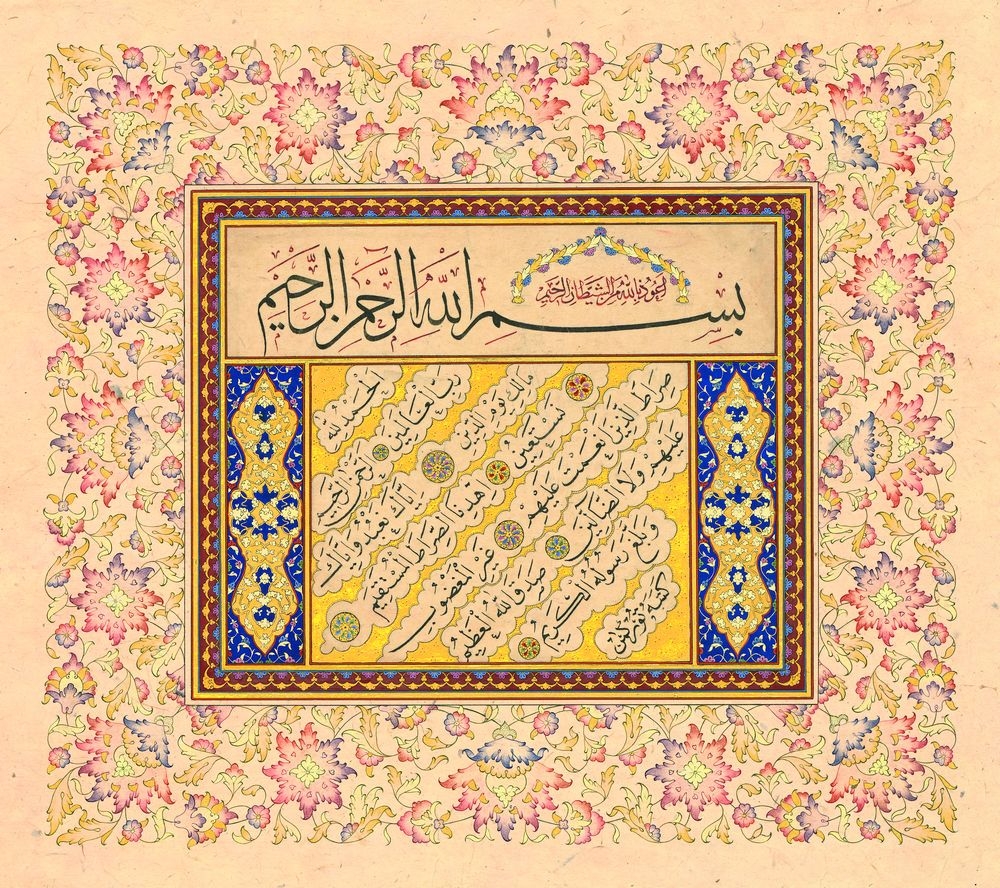 بسم الله الرحمن الرحيم
اعوذ بالله من الشيطان الرجيم
الحمد لله
رب العالمين الرحمن الرحيم
مالك يوم الدين اياك نعبد واياك
نستعين اهدنا الصراط المستقيم
صراط الذين انعمت عليهم غير المغضوب
عليهم ولا الضالين صدق الله العظيم
وبلغ رسوله الكريم
كتبه